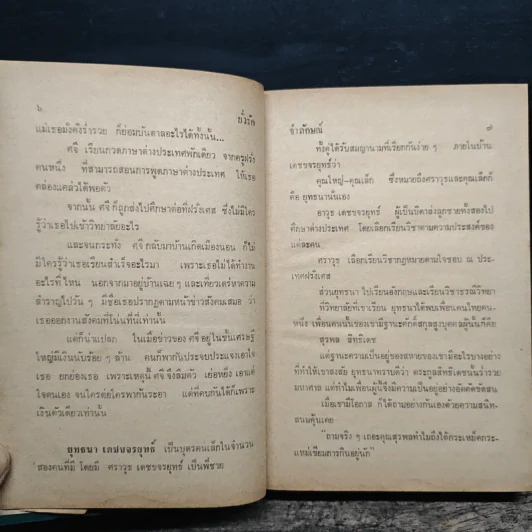 ๖
ยั่วรัก
แม่เธอมั่งคั่งร่ำรวย ก็ย่อมบันดาลอะไรได้ทั้งนั้น...
ศจี เรียนกวดภาษาต่างประเทศพักเดียว จากครูฝรั่ง
คนหนึ่ง ที่สามารถสอนการพูดภาษาต่างประเทศ ให้เธอ
คล่องแคล่วได้พอตัว
จากนั้น ศจี ก็ถูกส่งไปศึกษาต่อที่ฝรั่งเศส ซึ่งไม่มีใคร
รู้ว่าเธอไปเข้าวิทยาลัยอะไร
และจนกระทั่ง ศจี กลับมาบ้านเกิดเมืองนอน ก็ไม่
มีใครรู้ว่าเธอเรียนสำเร็จอะไรมา เพราะเธอไม่ได้ทำงาน
อะไรที่ไหน นอกจากมาอยู่บ้านเฉย ๆ และเที่ยวเตร่หาความ
สำราญไปวัน ๆ มีชื่อเธอปรากฏตามหน้าข่าวสังคมเสมอ ว่า
เธอออกงานสังคมที่โน่นที่นี่เท่านั้น
แต่ก็น่าแปลก ในเมื่อข่าวของ ศจี อยู่ในชั้นเศรษฐี
ใหญ่มีเงินนับร้อย ๆ ล้าน คนก็พากันประจบประแจงเอาใจ
เธอ ยกย่องเธอ เพราะเหตุนี้ ศจี จึงลืมตัว เย่อหยิ่ง เอาแต่
ใจตนเอง จนใครต่อใครพากันระอา แต่ที่คบกันได้ก็เพราะ
เงินตัวเดียวเท่านั้น
ยุทธนา เดชขจรยุทธ์ เป็นบุตรคนเล็กในจำนวน
สองคนที่มี โดยมี ศราวุธ เดชขจรยุทธ์ เป็นพี่ชาย
อำลักษณ์
๗
ทั้งคู่ได้รับสมญานามที่เรียกกันง่าย ๆ ภายในบ้าน
เดชขจรยุทธ์ว่า
คุณใหญ่-คุณเล็ก ซึ่งหมายถึงศราวุธและคุณเล็กก็
คือ ยุทธนานั่นเอง
อาวุธ เดชขจรยุทธ์ ผู้เป็นบิดาส่งลูกชายทั้งสองไป
ศึกษาต่างประเทศ โดยเลือกเรียนวิชาตามความประสงค์ของ
แต่ละคน
ศราวุธ เลือกเรียนวิชากฎหมายตามใจชอบ ณ ประ-
เทศฝรั่งเศส
ส่วนยุทธนา ไปเรียนอังกฤษและเรียนวิชาธรณีวิทยา
ที่วิทยาลัยที่เขาเรียน ยุทธนาได้พบเพื่อนคนไทยคน-
หนึ่ง เพื่อนคนนั้นของเขามีฐานะตกต่ำสกุลสูงบุคคลผู้นั้นก็คือ
สุรพล สิทธิเดช
แต่ฐานะความเป็นอยู่ของสหายของเขามีอะไรบางอย่าง
ที่ทำให้เขาสงสัย ยุทธนาทราบดีว่า ตระกูลสิทธิเดชนั้นร่ำรวย
มหาศาล แต่ทำไมเพื่อนผู้นี้จึงมีความเป็นอยู่อย่างอัตคัดขัดสน
เมื่อเขามีโอกาส ก็ได้ถามอย่างกันเองด้วยความสนิท-
สนมคุ้นเคย
"ถามจริง ๆ เถอะคุณสุรพลทำไมถึงได้กระเหม็ดกระ-
แหม่เขียมการกินอยู่นัก"